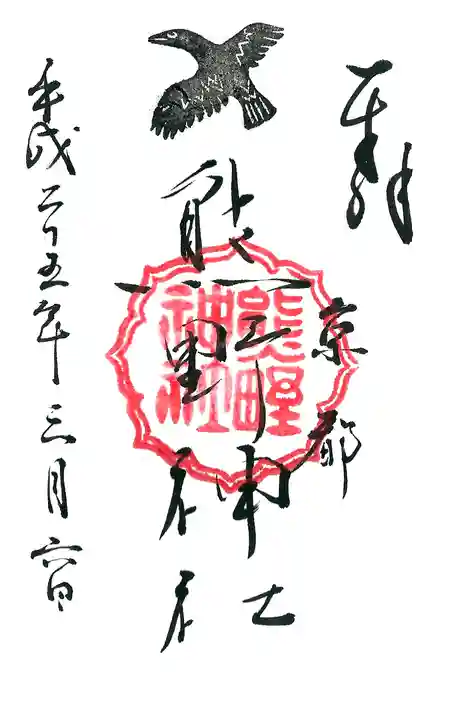 奉拝
京都
熊野神社
熊野
神社
平成二十五年三月六日